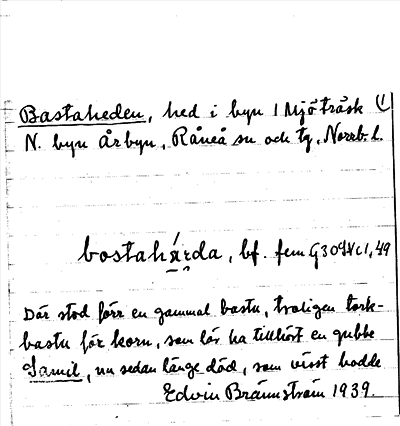 Bastaheden, hed i byn 1 Mjöträsk (1
N. byn Årbyn, Råneå sn och tg, Norrb. l.
bostahä́rda, bf. fem 49
Där stod förr en gammal bastu, troligen tork-
bastu för korn, som lär ha tillhört en gubbe
Samil, nu sedan länge död, som visst bodde
Edvin Brännström 1939.